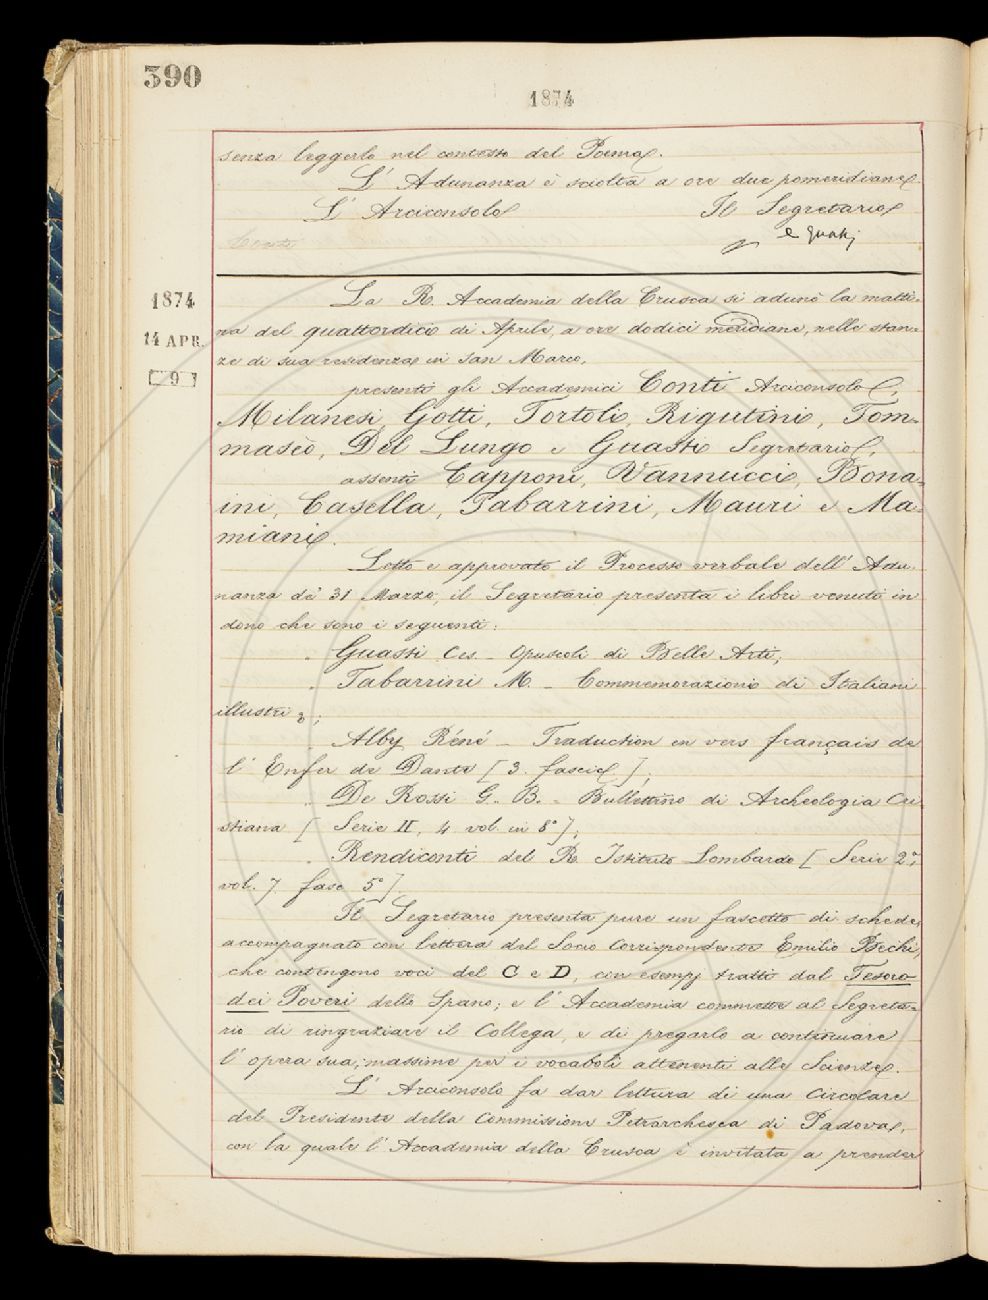 390
1874
senza leggerlo nel contesto del Poema.
L' Adunanza è sciolta a ore due pomeridiane
L' Arciconsolo Il Segretario
Conti
1874
La R. Accademia della Crusca si adunò la matti-
14 APR.
na del quattordici di Aprile, a ore dodici meridiane, nelle stan-
ze di sua residenza in San Marco.
[9]
presenti gli Accademici Conti Arciconsolo,
Milanesi, Gotti, Tortoli, Rigutini, Tom-
maseo, Del Lungo e Guasti Segretario,
assenti Capponi, Vannucci, Bona-
ini, Casella, Tabarrini, Mauri e Ma-
miani.
Letto e approvato il Processo verbale dell' Adu-
nanza de' 31 Marzo, il Segretario presenta i libri venuti in
dono che sono i seguenti:
Guasti Ces. - Opuscoli di Belle Arti;
Tabarrini M. - Commemorazioni di Italiani
illustri;
Alby Réné - Traduction en vers français de
l' Enfer de Dante [3. fascic];
De Rossi G. B. - Bullettino di Archeologia Cri
stiana [Serie II, 4 vol. in 8°];
Rendiconti del R. Istituto Lombardo [Serie 2ª,
vol. 7. fasc 5°].
Il Segretario presenta pure un fascetto di schede,
accompagnato con lettera del Socio Corrispondente Emilio Bechi,
che contengono voci del C e D, con esempj tratti dal Tesoro
dei Poveri dello Spano; e l' Accademia commette al Segreta-
rio di ringraziare il Collega, e di pregarlo a continuare
l' opera sua; massime per i vocaboli attenenti alle Scienze.
L' Arciconsolo fa dar lettura di una Circolare
del Presidente della Commissione Petrarchesca di Padova,
con la quale l' Accademia della Crusca è invitata a prender